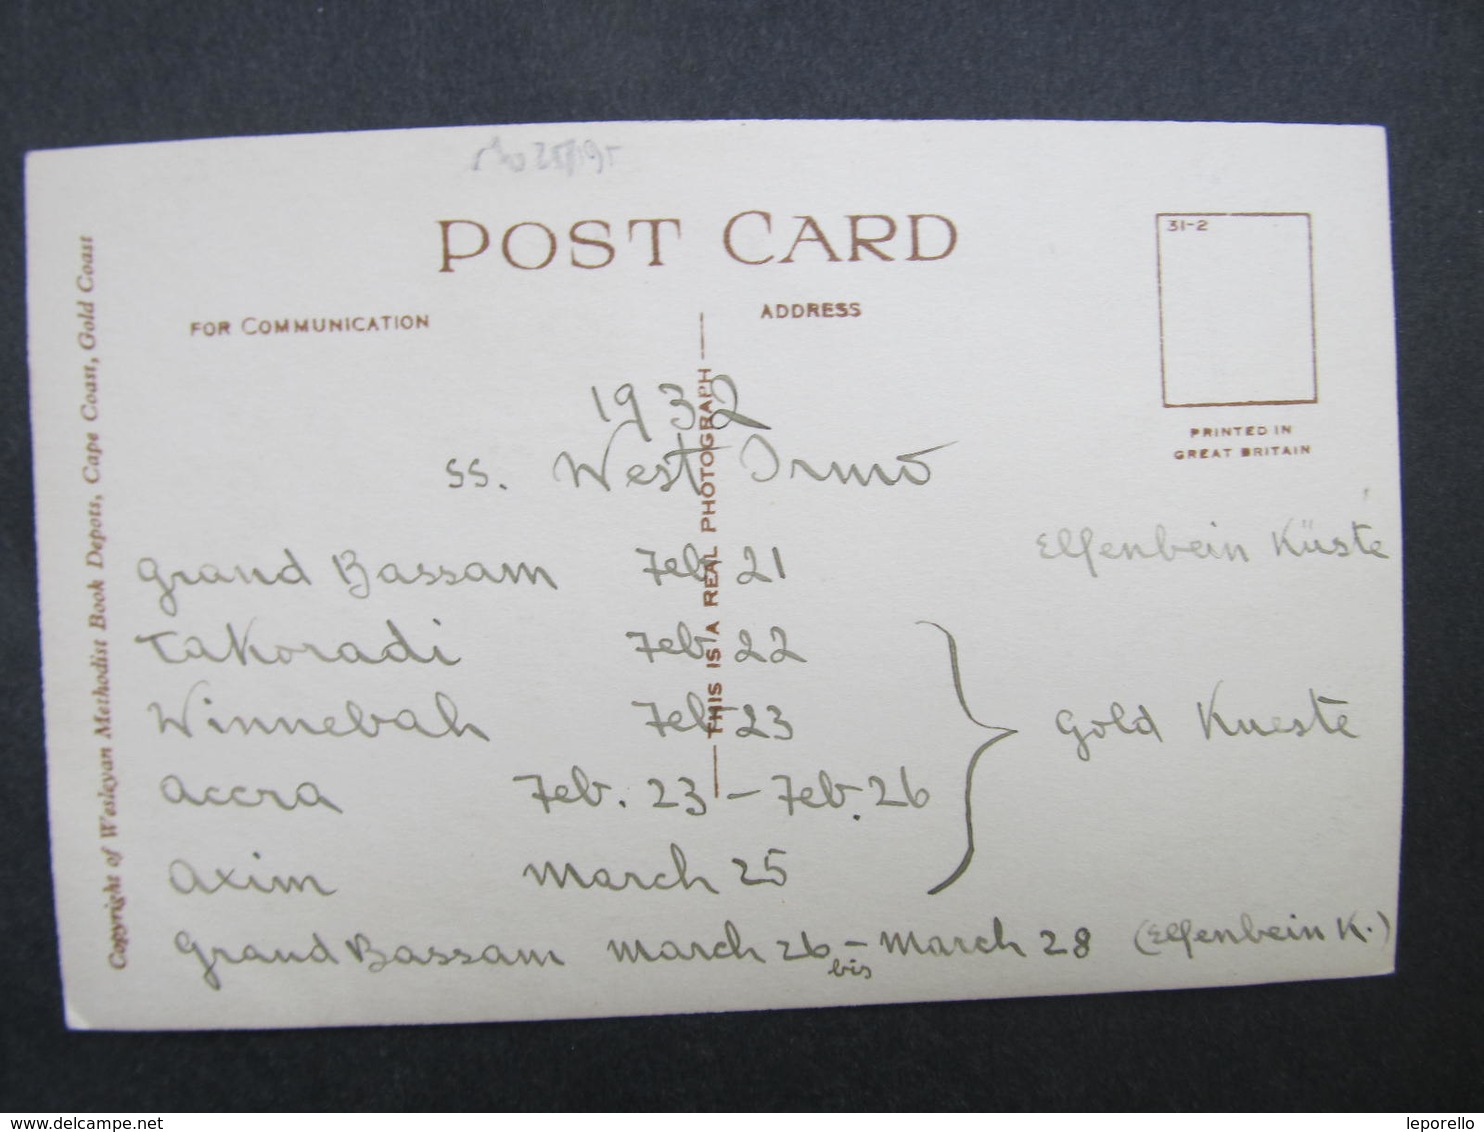 POST CARD
31-2
FOR COMMUNICATION
ADDRESS
PRINTED IN
GREAT BRITAIN
THIS IS A REAL PHOTOGRAPH
Copyright of Wesleyan Methodist Book Depots, Cape Coast, Gold Coast
1932
ss. West Irmo
Grand Bassam Feb 21 Elfenbein Küste
Takoradi Feb 22
Winnebah Feb 23 Gold Kueste
Accra Feb. 23 – Feb. 26
Axim March 25
Grand Bassam March 26 – March 28 (Elfenbein K.)
bis
www.delcampe.net
leporello